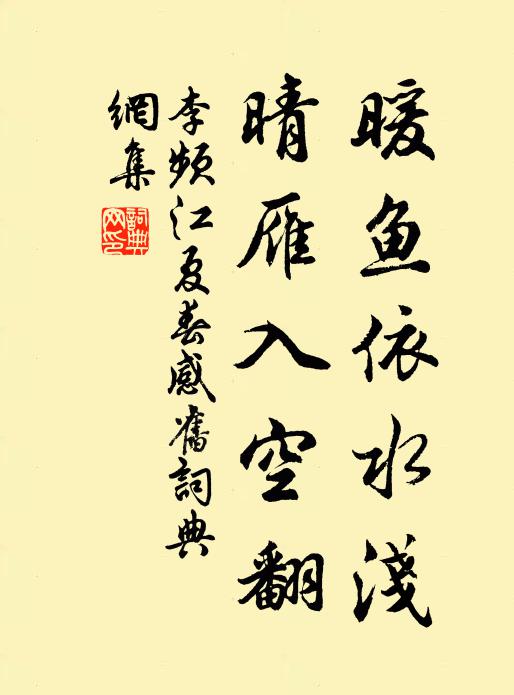 暖魚依水淺
晴雁入空翻
李頻江夏春感舊詞典
網集
詞典
网印